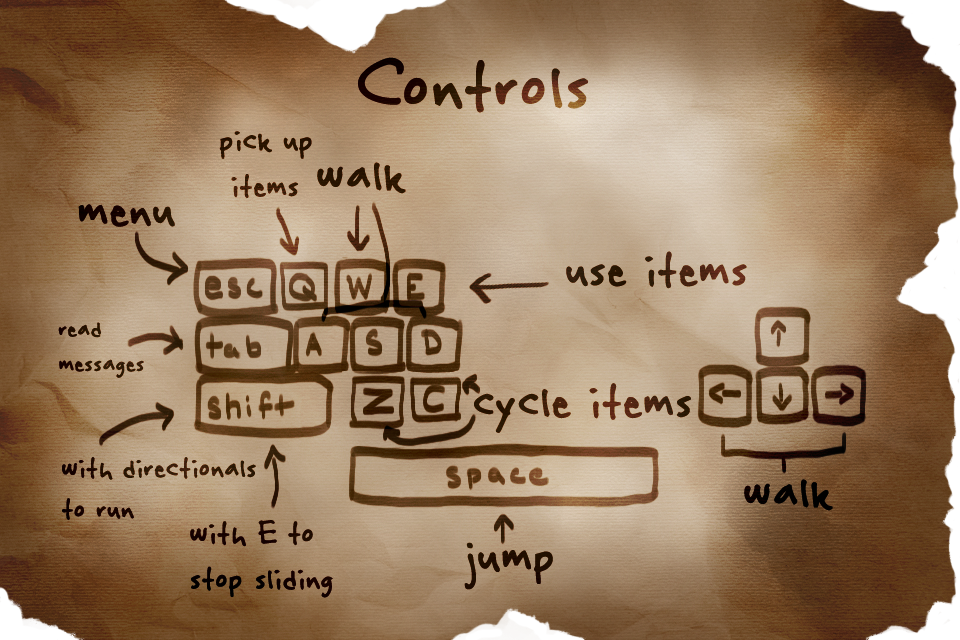 Controls
pick up
items
walk
menu
esc Q W E
use items
read
messages
tab A S D
↑
shift Z C
cycle items
← ↓ →
with directionals
to run
space
walk
with E to
stop sliding
jump